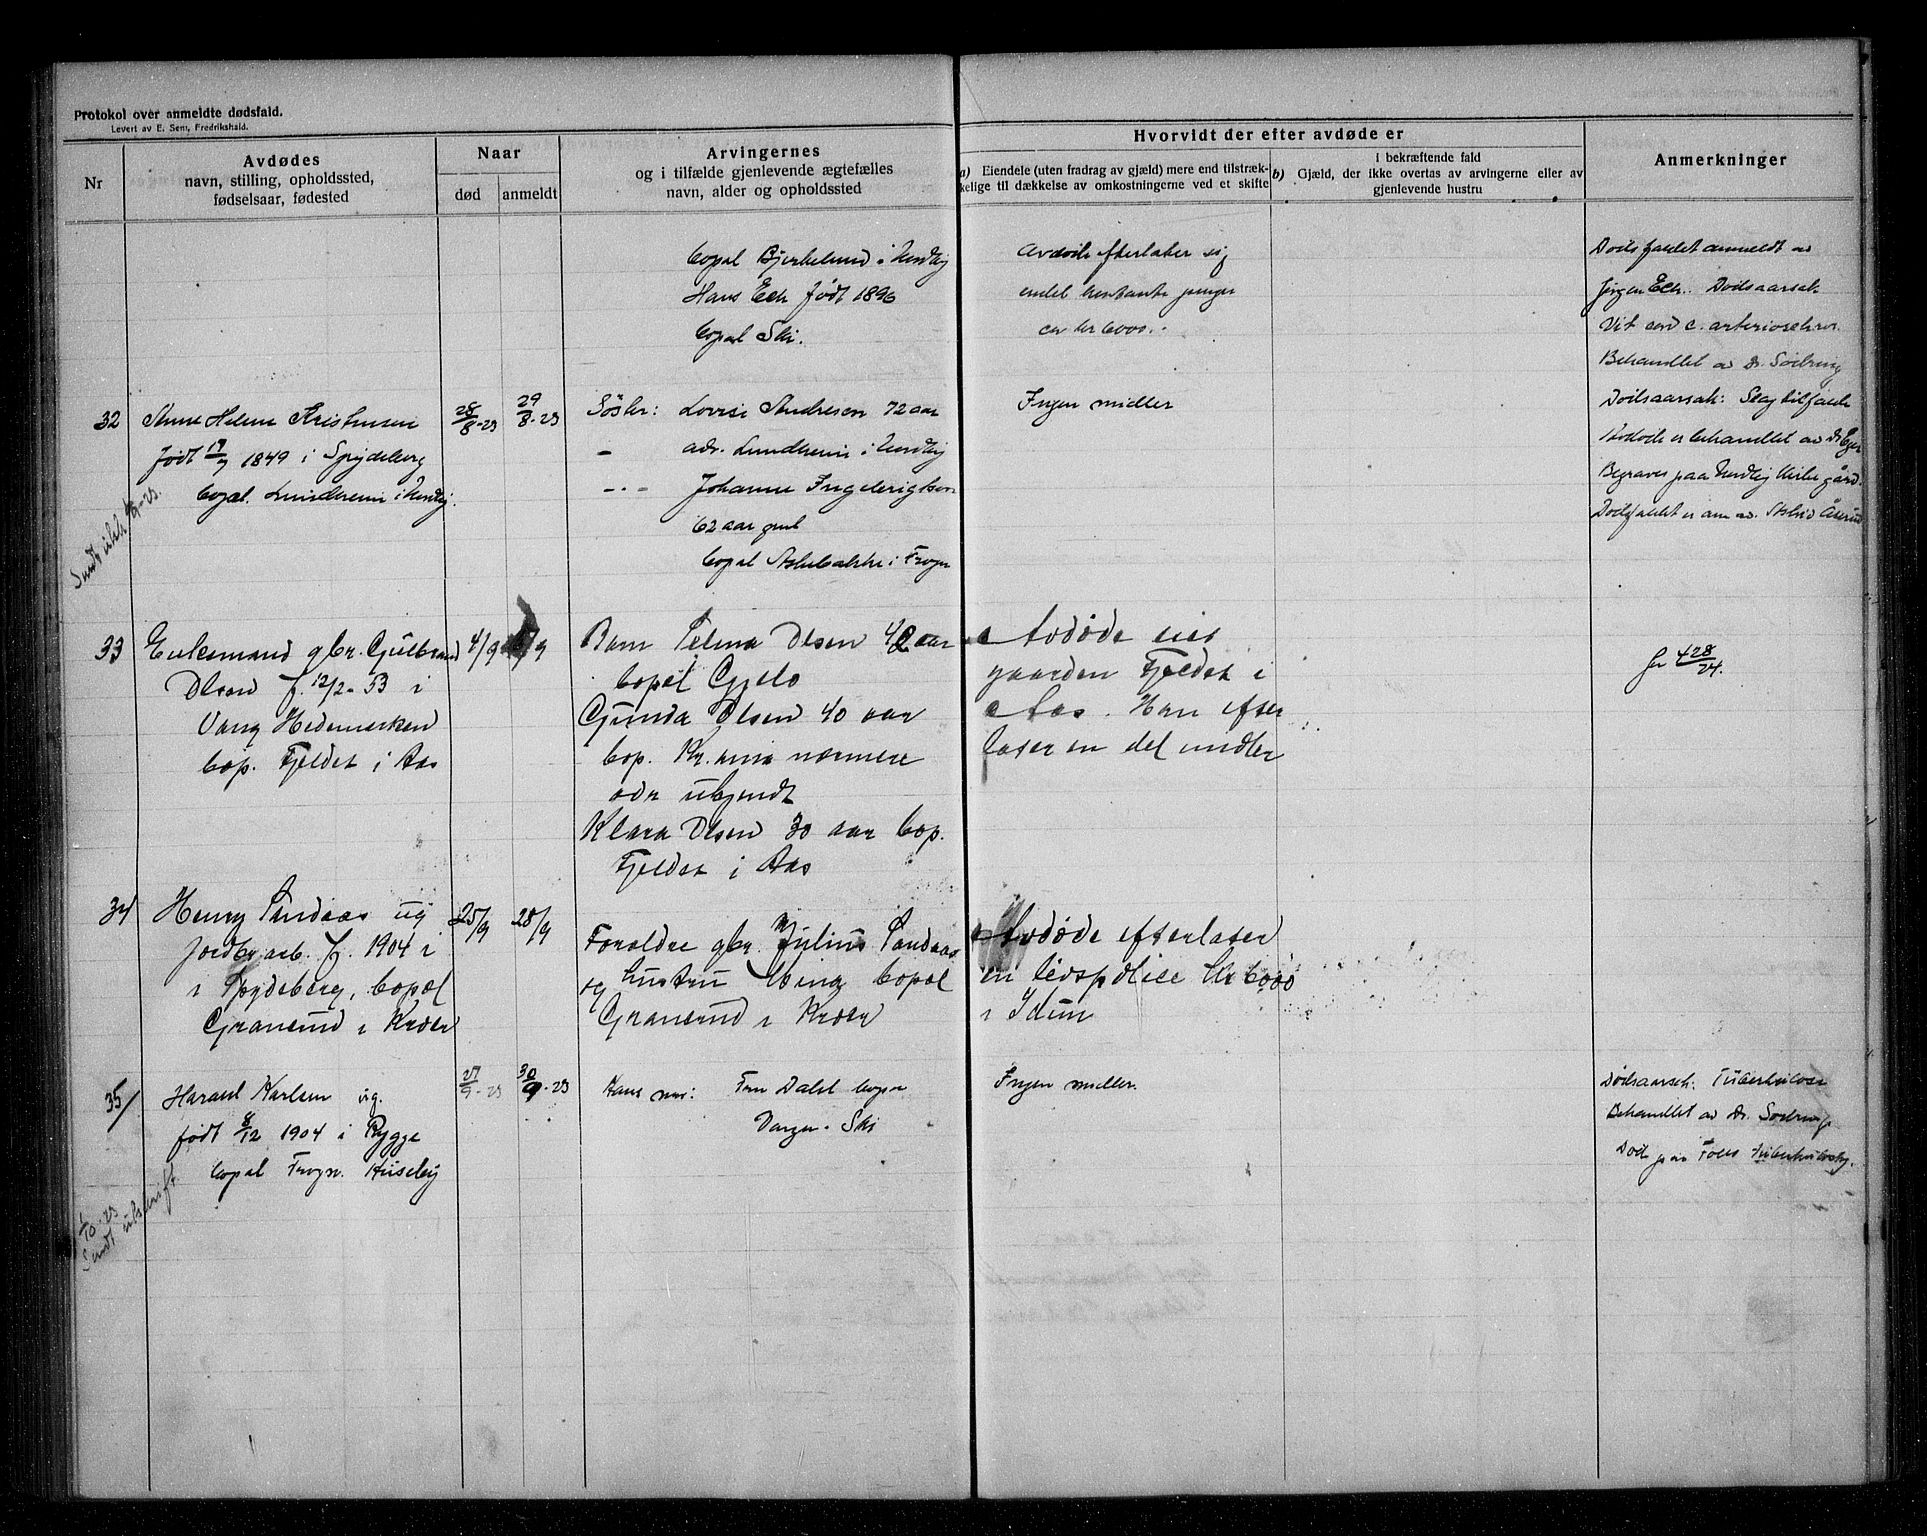 Protokol over anmeldte dødsfald.
Levert av E. Sem, Fredrikshald.
Nr
Avdødes
navn, stilling, opholdssted,
fødselsaar, fødested
Naar
død
anmeldt
Arvingernes
og i tilfælde gjenlevende ægtefælles
navn, alder og opholdssted
Hvorvidt der efter avdøde er
a) Eiendele (uten fradrag av gjæld) mere end tilstræk-
kelige til dækkelse av omkostningerne ved et skifte
I bekræftende fald
b) Gjæld, der ikke overtas av arvingerne eller av
gjenlevende hustru
Anmerkninger
bopæl Bjerkelund i
Hans Eek født 1896
bopæl Ski.
Avdøde efterlater sig
endel kontante penger
ca kr 6000.-
Dødsfaldet anmeldt av
Jørgen Eek. Dødsaarsak
Vit cord c. arteriosclero.
Behandlet av Dr. Sødring
32
Anne Helene Kristensen
født 17/7 1849 i Spydeberg
bopæl. Lundheim i
28/8-23
29/8-23
Søster: Lovise Andresen 72 aar
adr. Lundheim i
Johanne Ingebrigtsen
62 aar gml
bopæl i Frogn
Ingen midler
Dødsaarsak: Slagtilfælde
Avdøde er behandlet av Dr
Begraves paa Kirkegård.
Dødsfaldet er anm av.
33
Enkemand gbr. Gulbrand
Olsen f. 12/2-53 i
Vang Hedemarken
bop. Fjeldet i Aas
4/9
/9
Barn Selma Olsen 42 aar
bopæl Oslo
Gunda Olsen 40 aar
bop. Kr.ania nærmere
adr ubejendt
Klara Olsen 30 aar bop.
Fjeldet i Aas
Avdøde eies
gaarden Fjeldet i
Aas. Han efter
laser en del midler
428/24.
34
Henry Sandaas ug
jordbr arb. f. 1904 i
i Spydeberg, bopæl
Granerud i Kroer
25/9
28/9
Foreldre gbr. Julius Sandaas
og hustru bopæl
Granerud i Kroer
Avdøde efterlaser
en livspolice kr 6000
i Idun
35/
Harald Karlsen ug.
født 8/12 1904 i Rygge
bopæl Frogn. Huseby
27/9-23
30/9-23
Hans mor: Fru Dahl bopæl
Ski
Ingen midler.
Dødsaarsak: Tuberkulose
Behandlet av Dr. Sødring
Død paa Tuberkulosehj.
1/10-23
Sendt utskrift